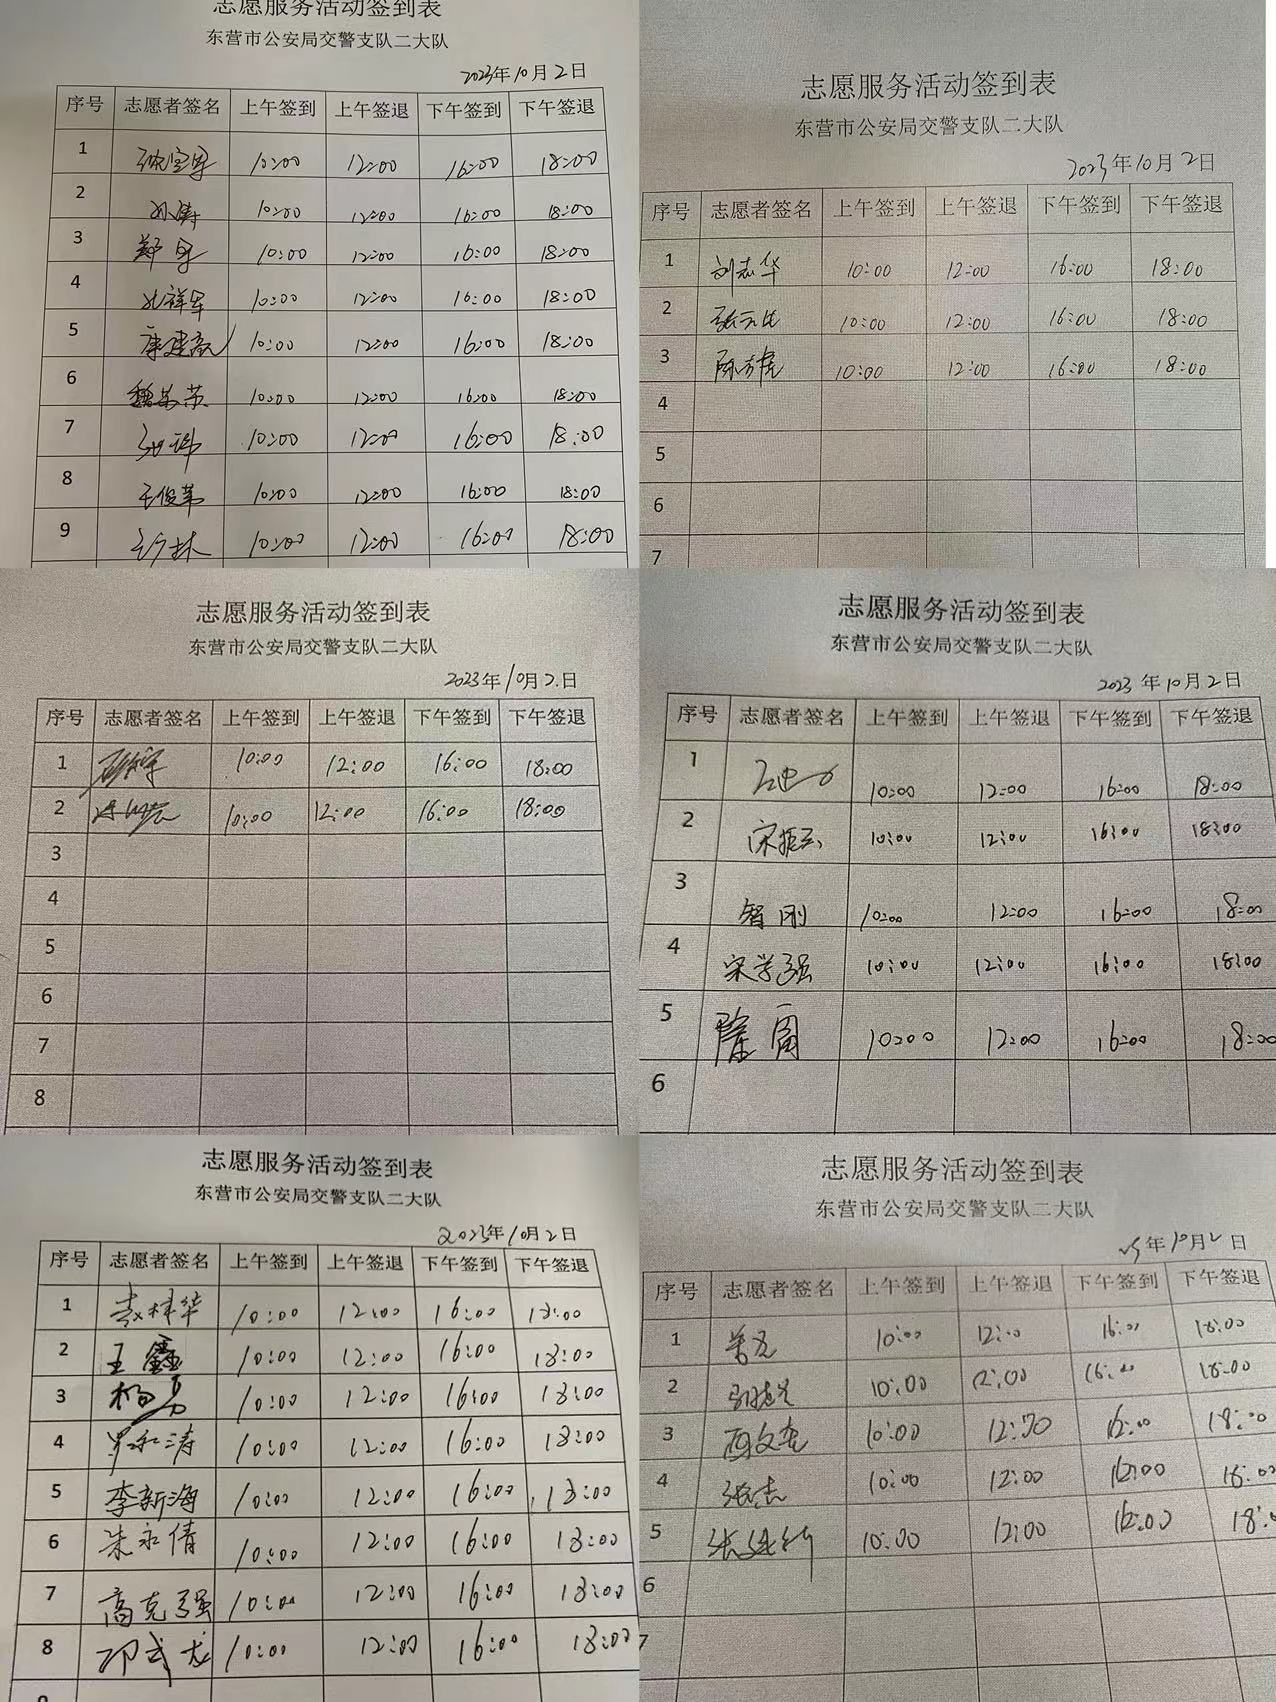 志愿服务活动签到表
东营市公安局交警支队二大队
2023年10月2日
序号 志愿者签名 上午签到 上午签退 下午签到 下午签退
1 10:00 12:00 16:00 18:00
2 孙涛 10:00 12:00 16:00 18:00
3 郑军 10:00 12:00 16:00 18:00
4 祥军 10:00 12:00 16:00 18:00
5 10:00 12:00 16:00 18:00
6 10:00 12:00 16:00 18:00
7 10:00 12:00 16:00 18:00
8 王俊 10:00 12:00 16:00 18:00
9 10:00 12:00 16:00 18:00
志愿服务活动签到表
东营市公安局交警支队二大队
2023年10月2日
序号 志愿者签名 上午签到 上午签退 下午签到 下午签退
1 刘志华 10:00 12:00 16:00 18:00
2 张 10:00 12:00 16:00 18:00
3 陈 10:00 12:00 16:00 18:00
4
5
6
7
志愿服务活动签到表
东营市公安局交警支队二大队
2023年10月2日
序号 志愿者签名 上午签到 上午签退 下午签到 下午签退
1 10:00 12:00 16:00 18:00
2 10:00 12:00 16:00 18:00
3
4
5
6
7
8
志愿服务活动签到表
东营市公安局交警支队二大队
2023年10月2日
序号 志愿者签名 上午签到 上午签退 下午签到 下午签退
1 10:00 12:00 16:00 18:00
2 宋振 10:00 12:00 16:00 18:00
3 智刚 10:00 12:00 16:00 18:00
4 宋学强 10:00 12:00 16:00 18:00
5 10:00 12:00 16:00 18:00
6
志愿服务活动签到表
东营市公安局交警支队二大队
2023年10月2日
序号 志愿者签名 上午签到 上午签退 下午签到 下午签退
1 10:00 12:00 16:00 18:00
2 王鑫 10:00 12:00 16:00 18:00
3 杨勇 10:00 12:00 16:00 18:00
4 涛 10:00 12:00 16:00 18:00
5 李新海 10:00 12:00 16:00 18:00
6 朱永倩 10:00 12:00 16:00 18:00
7 高克强 10:00 12:00 16:00 18:00
8 邵武龙 10:00 12:00 16:00 18:00
志愿服务活动签到表
东营市公安局交警支队二大队
年10月2日
序号 志愿者签名 上午签到 上午签退 下午签到 下午签退
1 10:00 12:00 16:00 18:00
2 10:00 12:00 16:00 18:00
3 10:00 12:00 16:00 18:00
4 张志 10:00 12:00 16:00 18:00
5 张建 10:00 12:00 16:00 18:
6
7